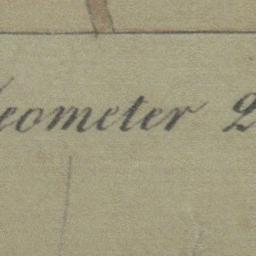 Geometer 2